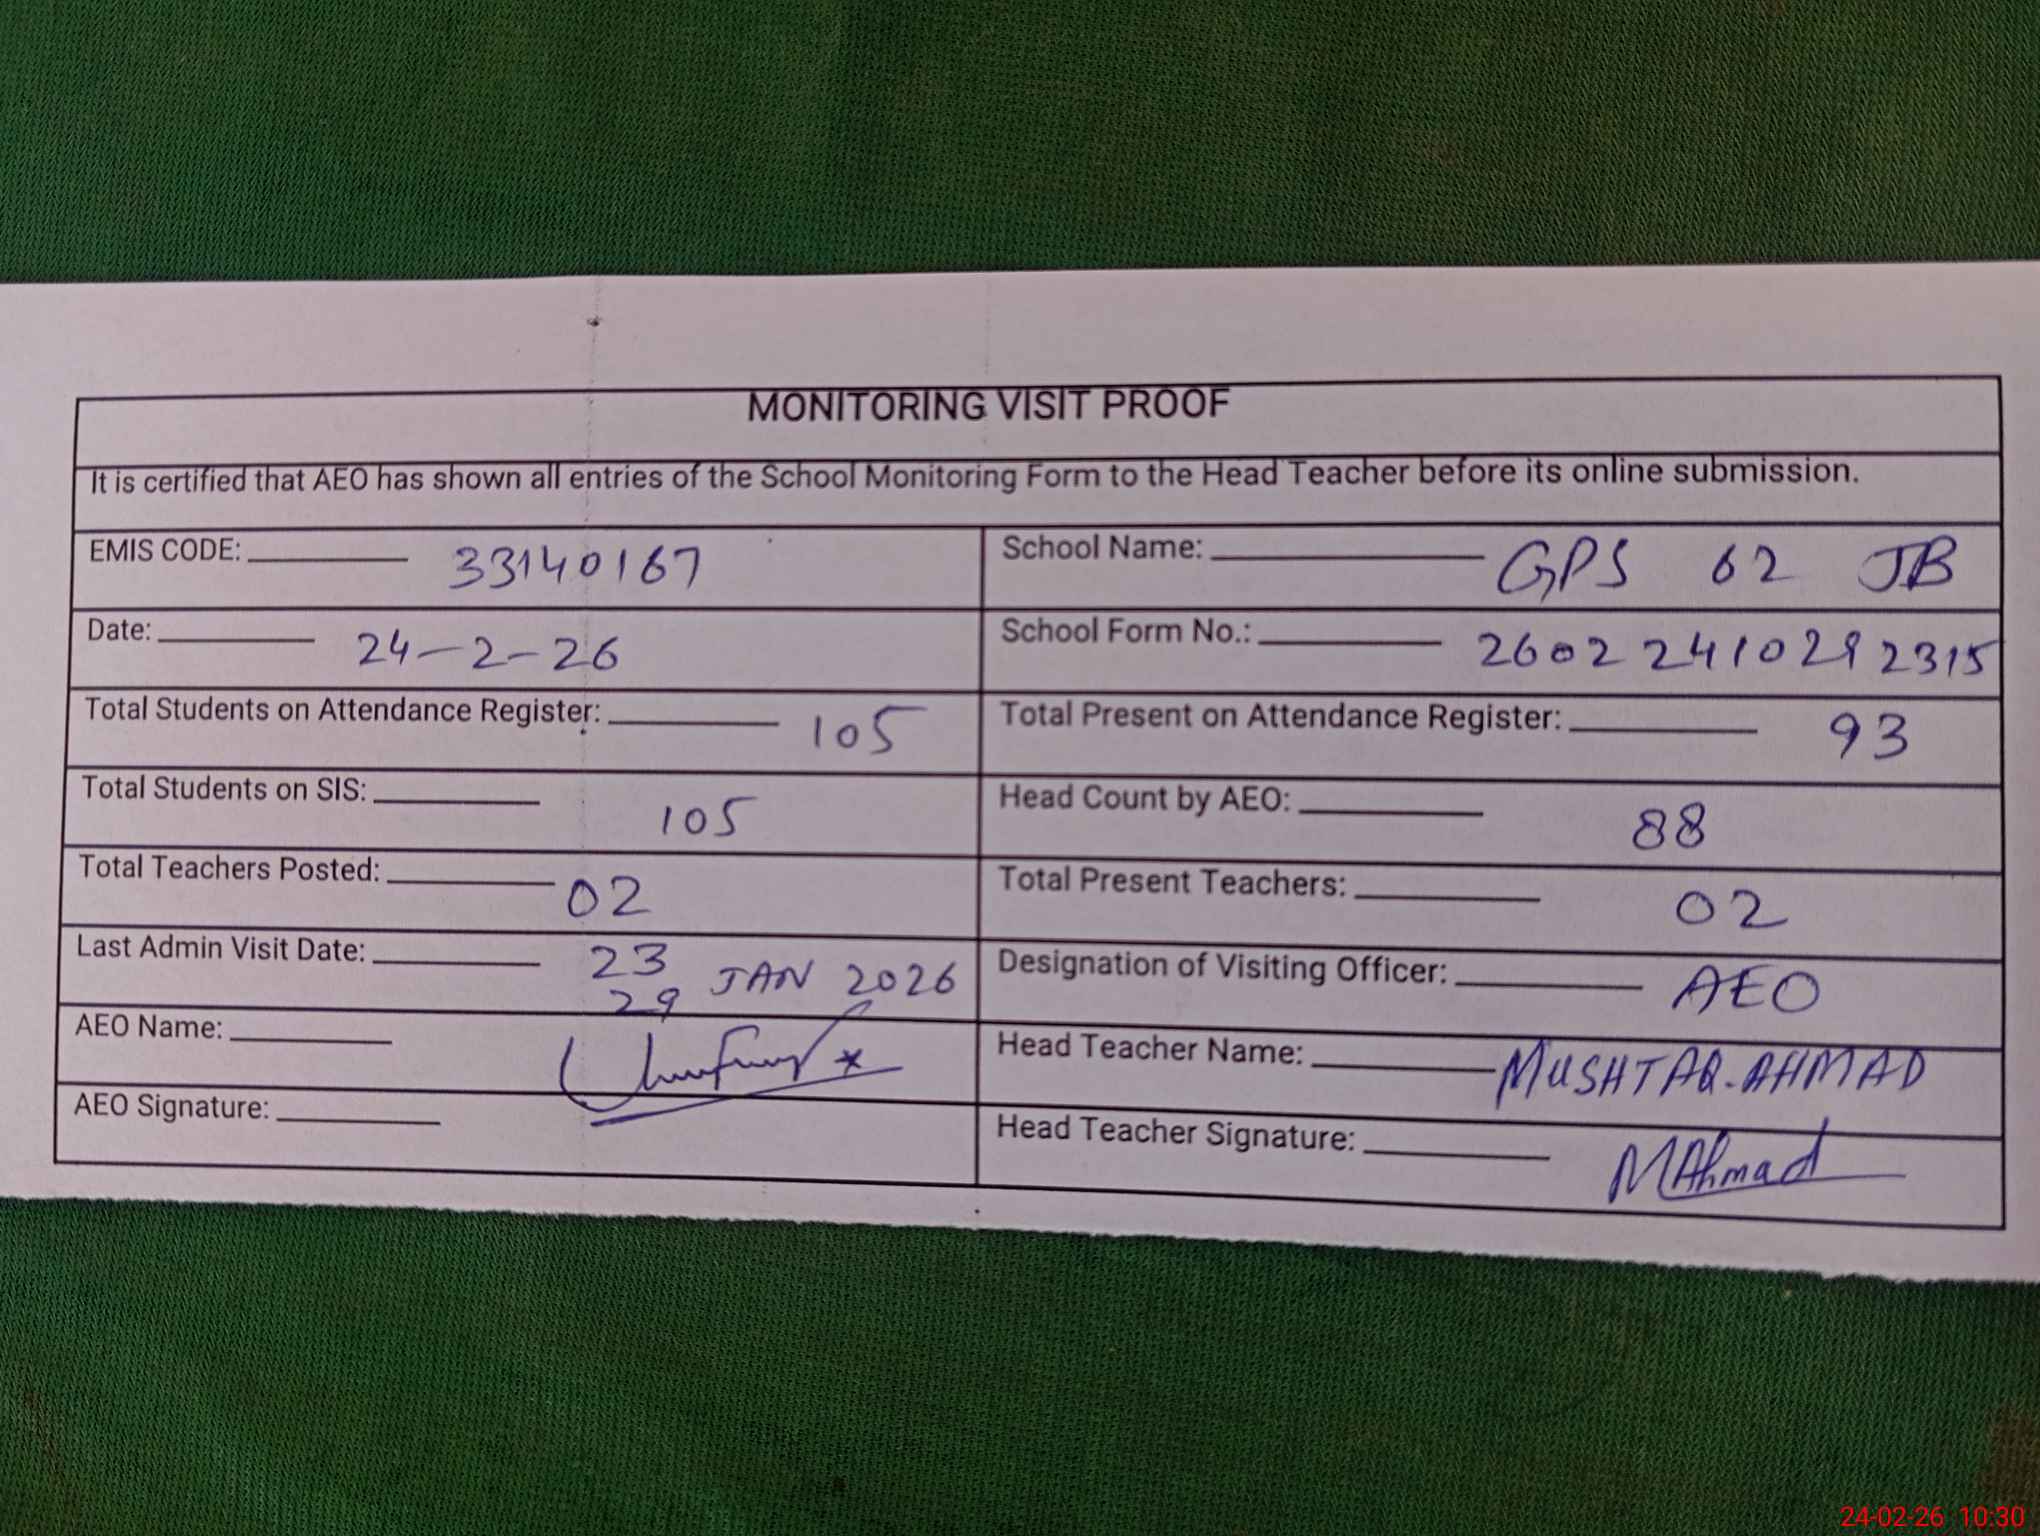 MONITORING VISIT PROOF
It is certified that AEO has shown all entries of the School Monitoring Form to the Head Teacher before its online submission.
EMIS CODE: 33140167
School Name: GPS 62 JB
Date: 24-2-26
School Form No.: 26022410292315
Total Students on Attendance Register: 105
Total Present on Attendance Register: 93
Total Students on SIS: 105
Head Count by AEO: 88
Total Teachers Posted: 02
Total Present Teachers: 02
Last Admin Visit Date: 23 JAN 2026
29
Designation of Visiting Officer: AEO
AEO Name:
Head Teacher Name: MUSHTAQ.AHMAD
AEO Signature:
Head Teacher Signature: MAhmad
24-02-26 10:30